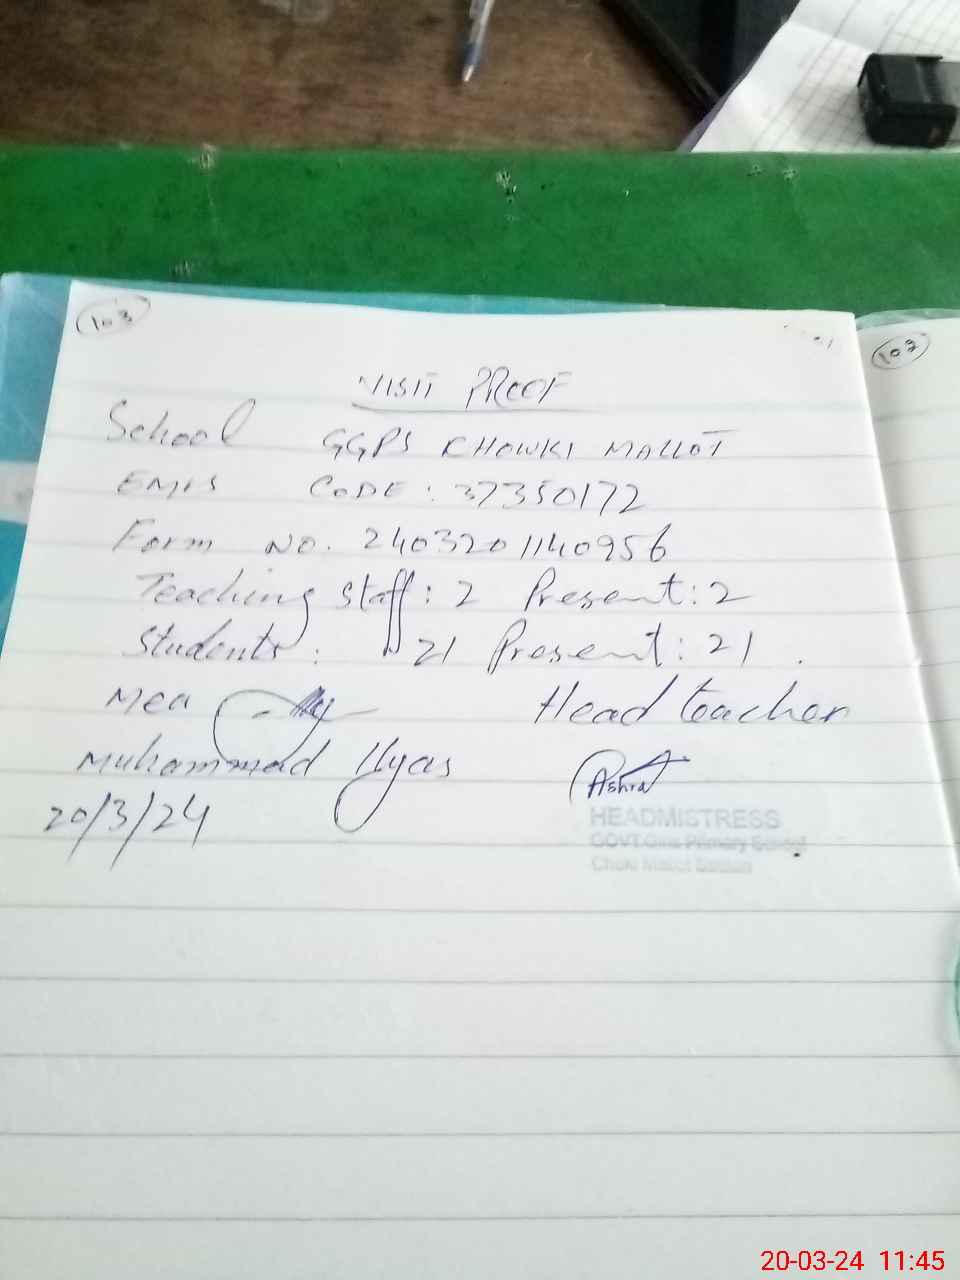 103
102
VISIT PROOF
School GGPS KHOWKI MALLOT
EMIS CODE : 37350172
Form No. 2403201140956
Teaching Staff : 2 Present : 2
Students : 21 Present : 21 .
Mea Head teacher
Muhammad Ilyas
20/3/24
HEADMISTRESS
GOVT Girls Primary School
20-03-24 11:45